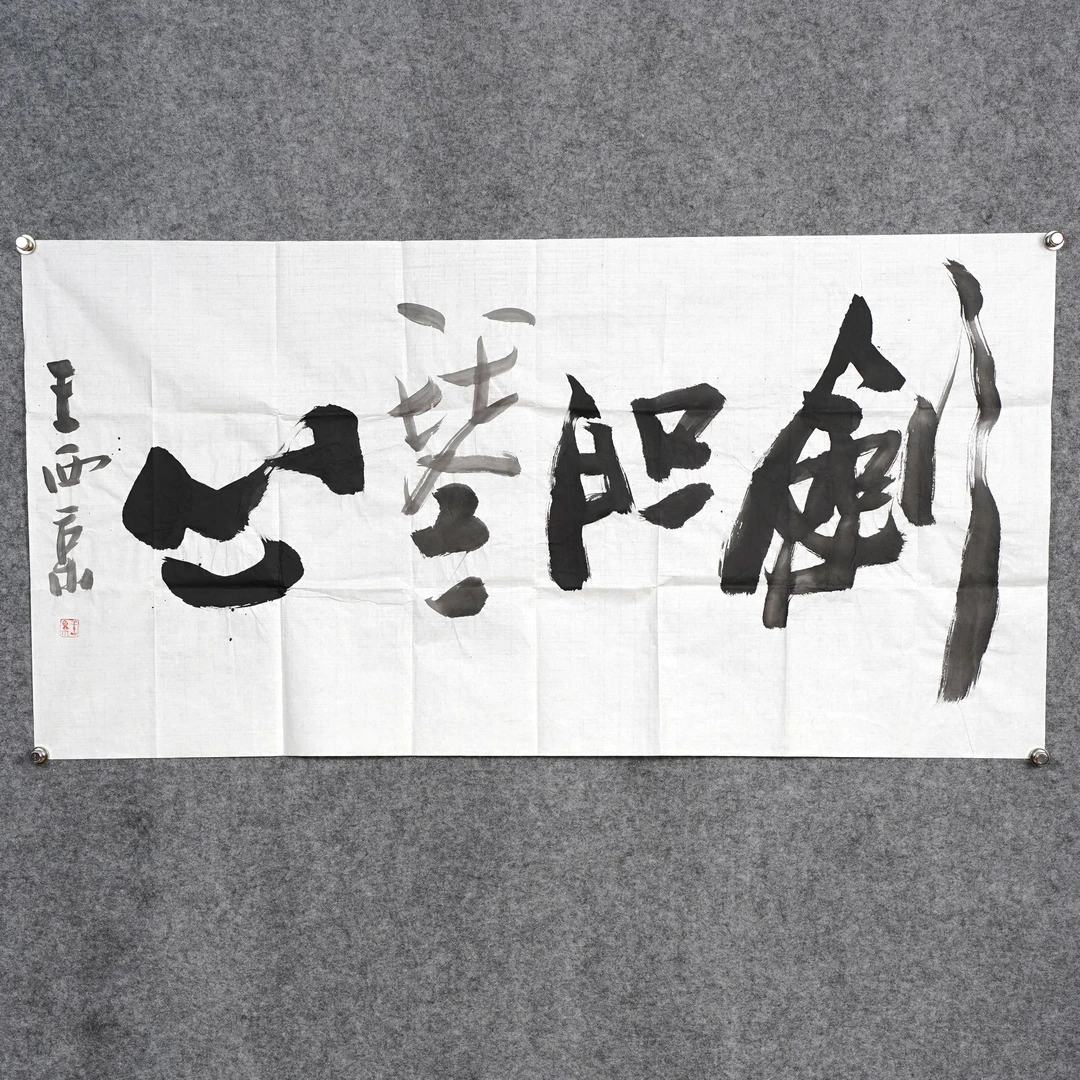 劍胆琴心
王西京